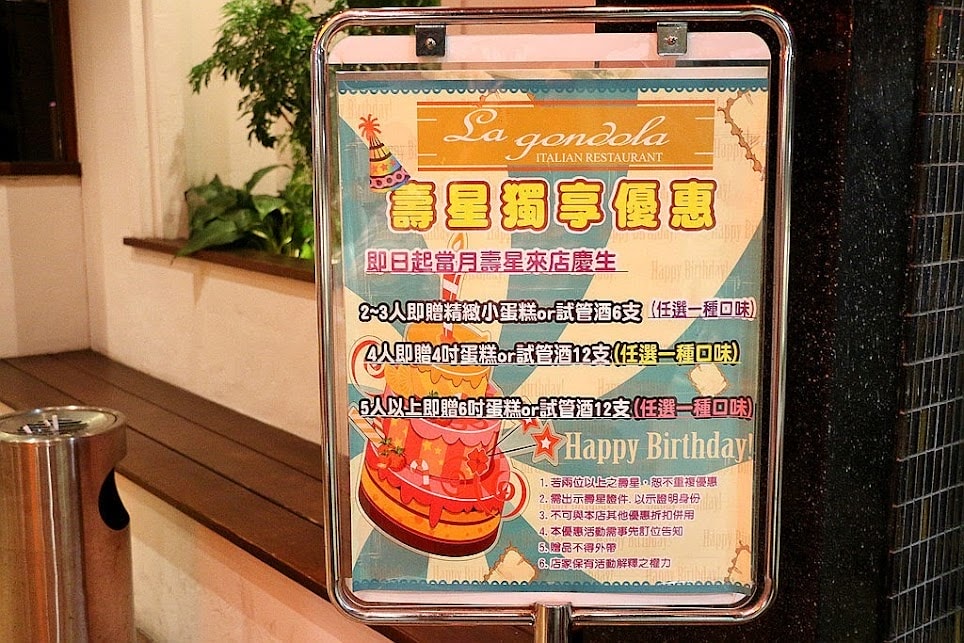 La gondola
ITALIAN RESTAURANT
壽星獨享優惠
即日起當月壽星來店慶生
2~3人即贈精緻小蛋糕or試管酒6支 (任選一種口味)
4人即贈4吋蛋糕or試管酒12支(任選一種口味)
5人以上即贈6吋蛋糕or試管酒12支(任選一種口味)
Happy Birthday!
1. 若兩位以上之壽星，恕不重複優惠
2. 需出示壽星證件. 以示證明身份
3. 不可與本店其他優惠折扣併用
4. 本優惠活動需事先訂位告知
5. 贈品不得外帶
6. 店家保有活動解釋之權力